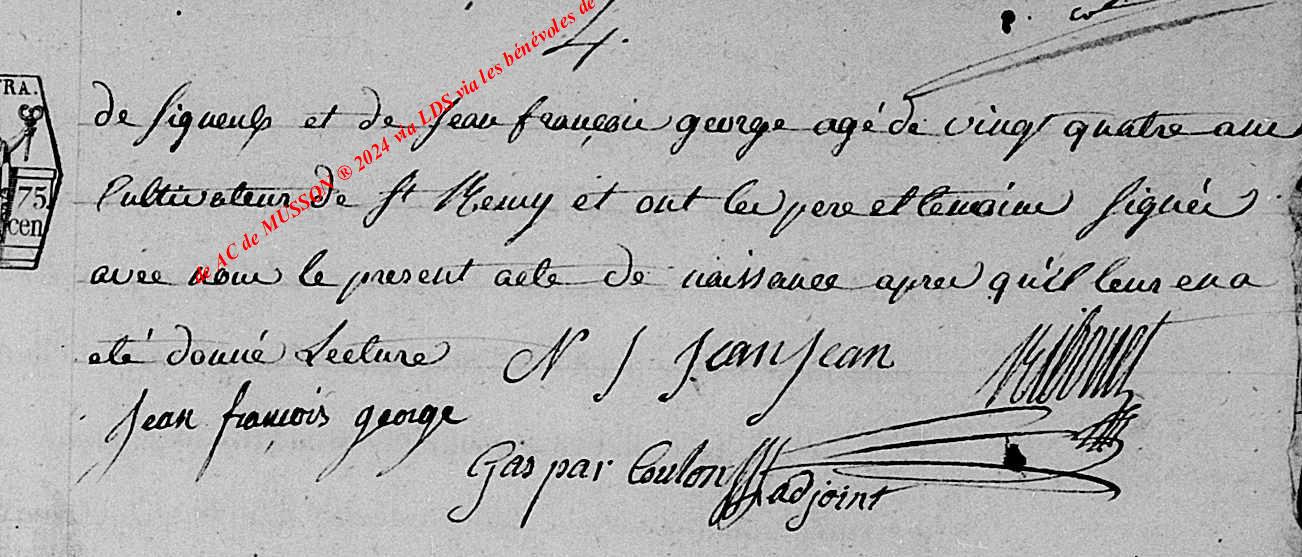 4.
TRA.
75
cen
de AC de MUSSON ® 2024 via LDS via les bénévoles de
de Signeulx et de Jean françois george agé de vingt quatre ans
Cultivateur de St Remy et ont les pere et temoins Signés
avec nous le present acte de naissance apres qu'il leur en a
eté donné Lecture N J Jean Jean Ribonet
Jean françois george
Gaspar Coulon adjoint